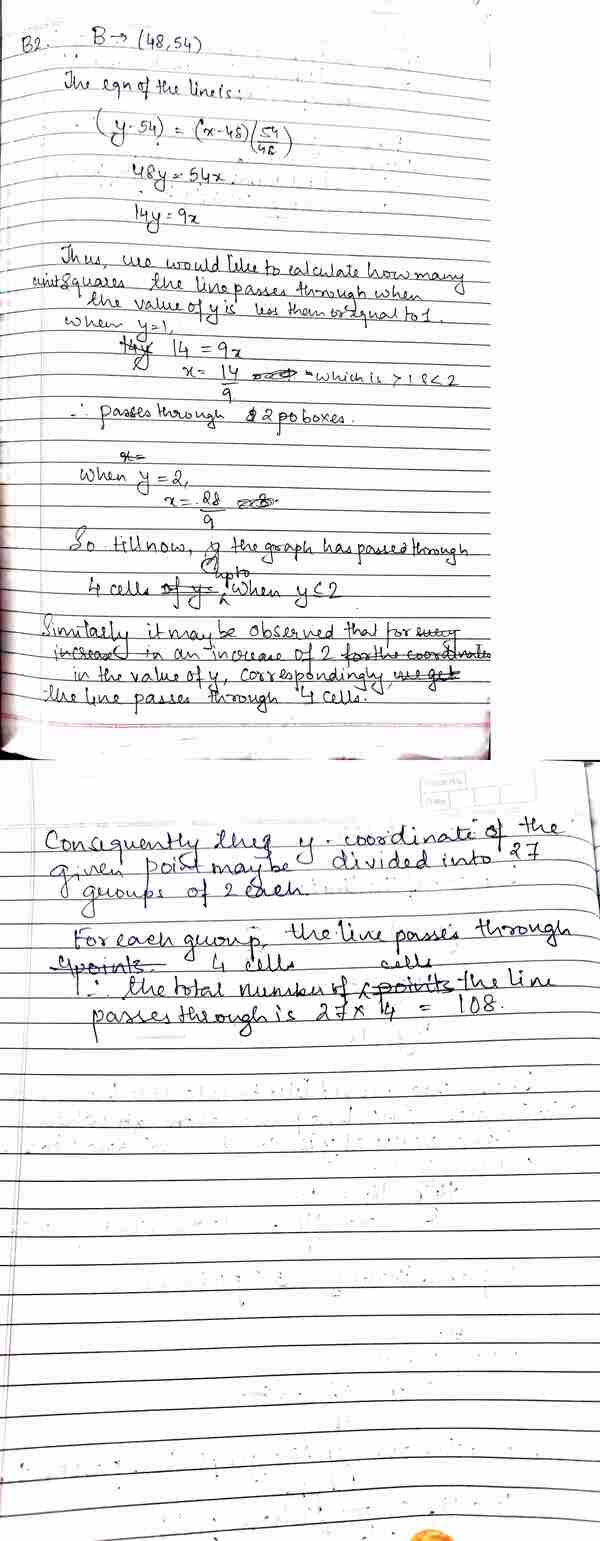 B2. B → (48,54)
The eqn of the line is:
(y - 54) = (x - 48) (54/48)
48y = 54x.
14y = 9x
Thus, we would like to calculate how many
unit squares the line passes through when
the value of y is less than or equal to 1.
when y=1,
14y 14 = 9x
x = 14/9 - which is > 1 & < 2
∴ passes through 2 po boxes.
x =
when y = 2,
x = 28/9
So till now, the graph has passed through
4 cells of y = upto when y ≤ 2
Similarly it may be observed that for every
increase in an increase of 2 for the coordinates
in the value of y, correspondingly, we get
the line passes through 4 cells.
Consequently the y-coordinate of the
given point may be divided into 27
groups of 2 each.
For each group, the line passes through
4 points. 4 cells
∴ the total number of cells points the line
passes through is 27 × 4 = 108.